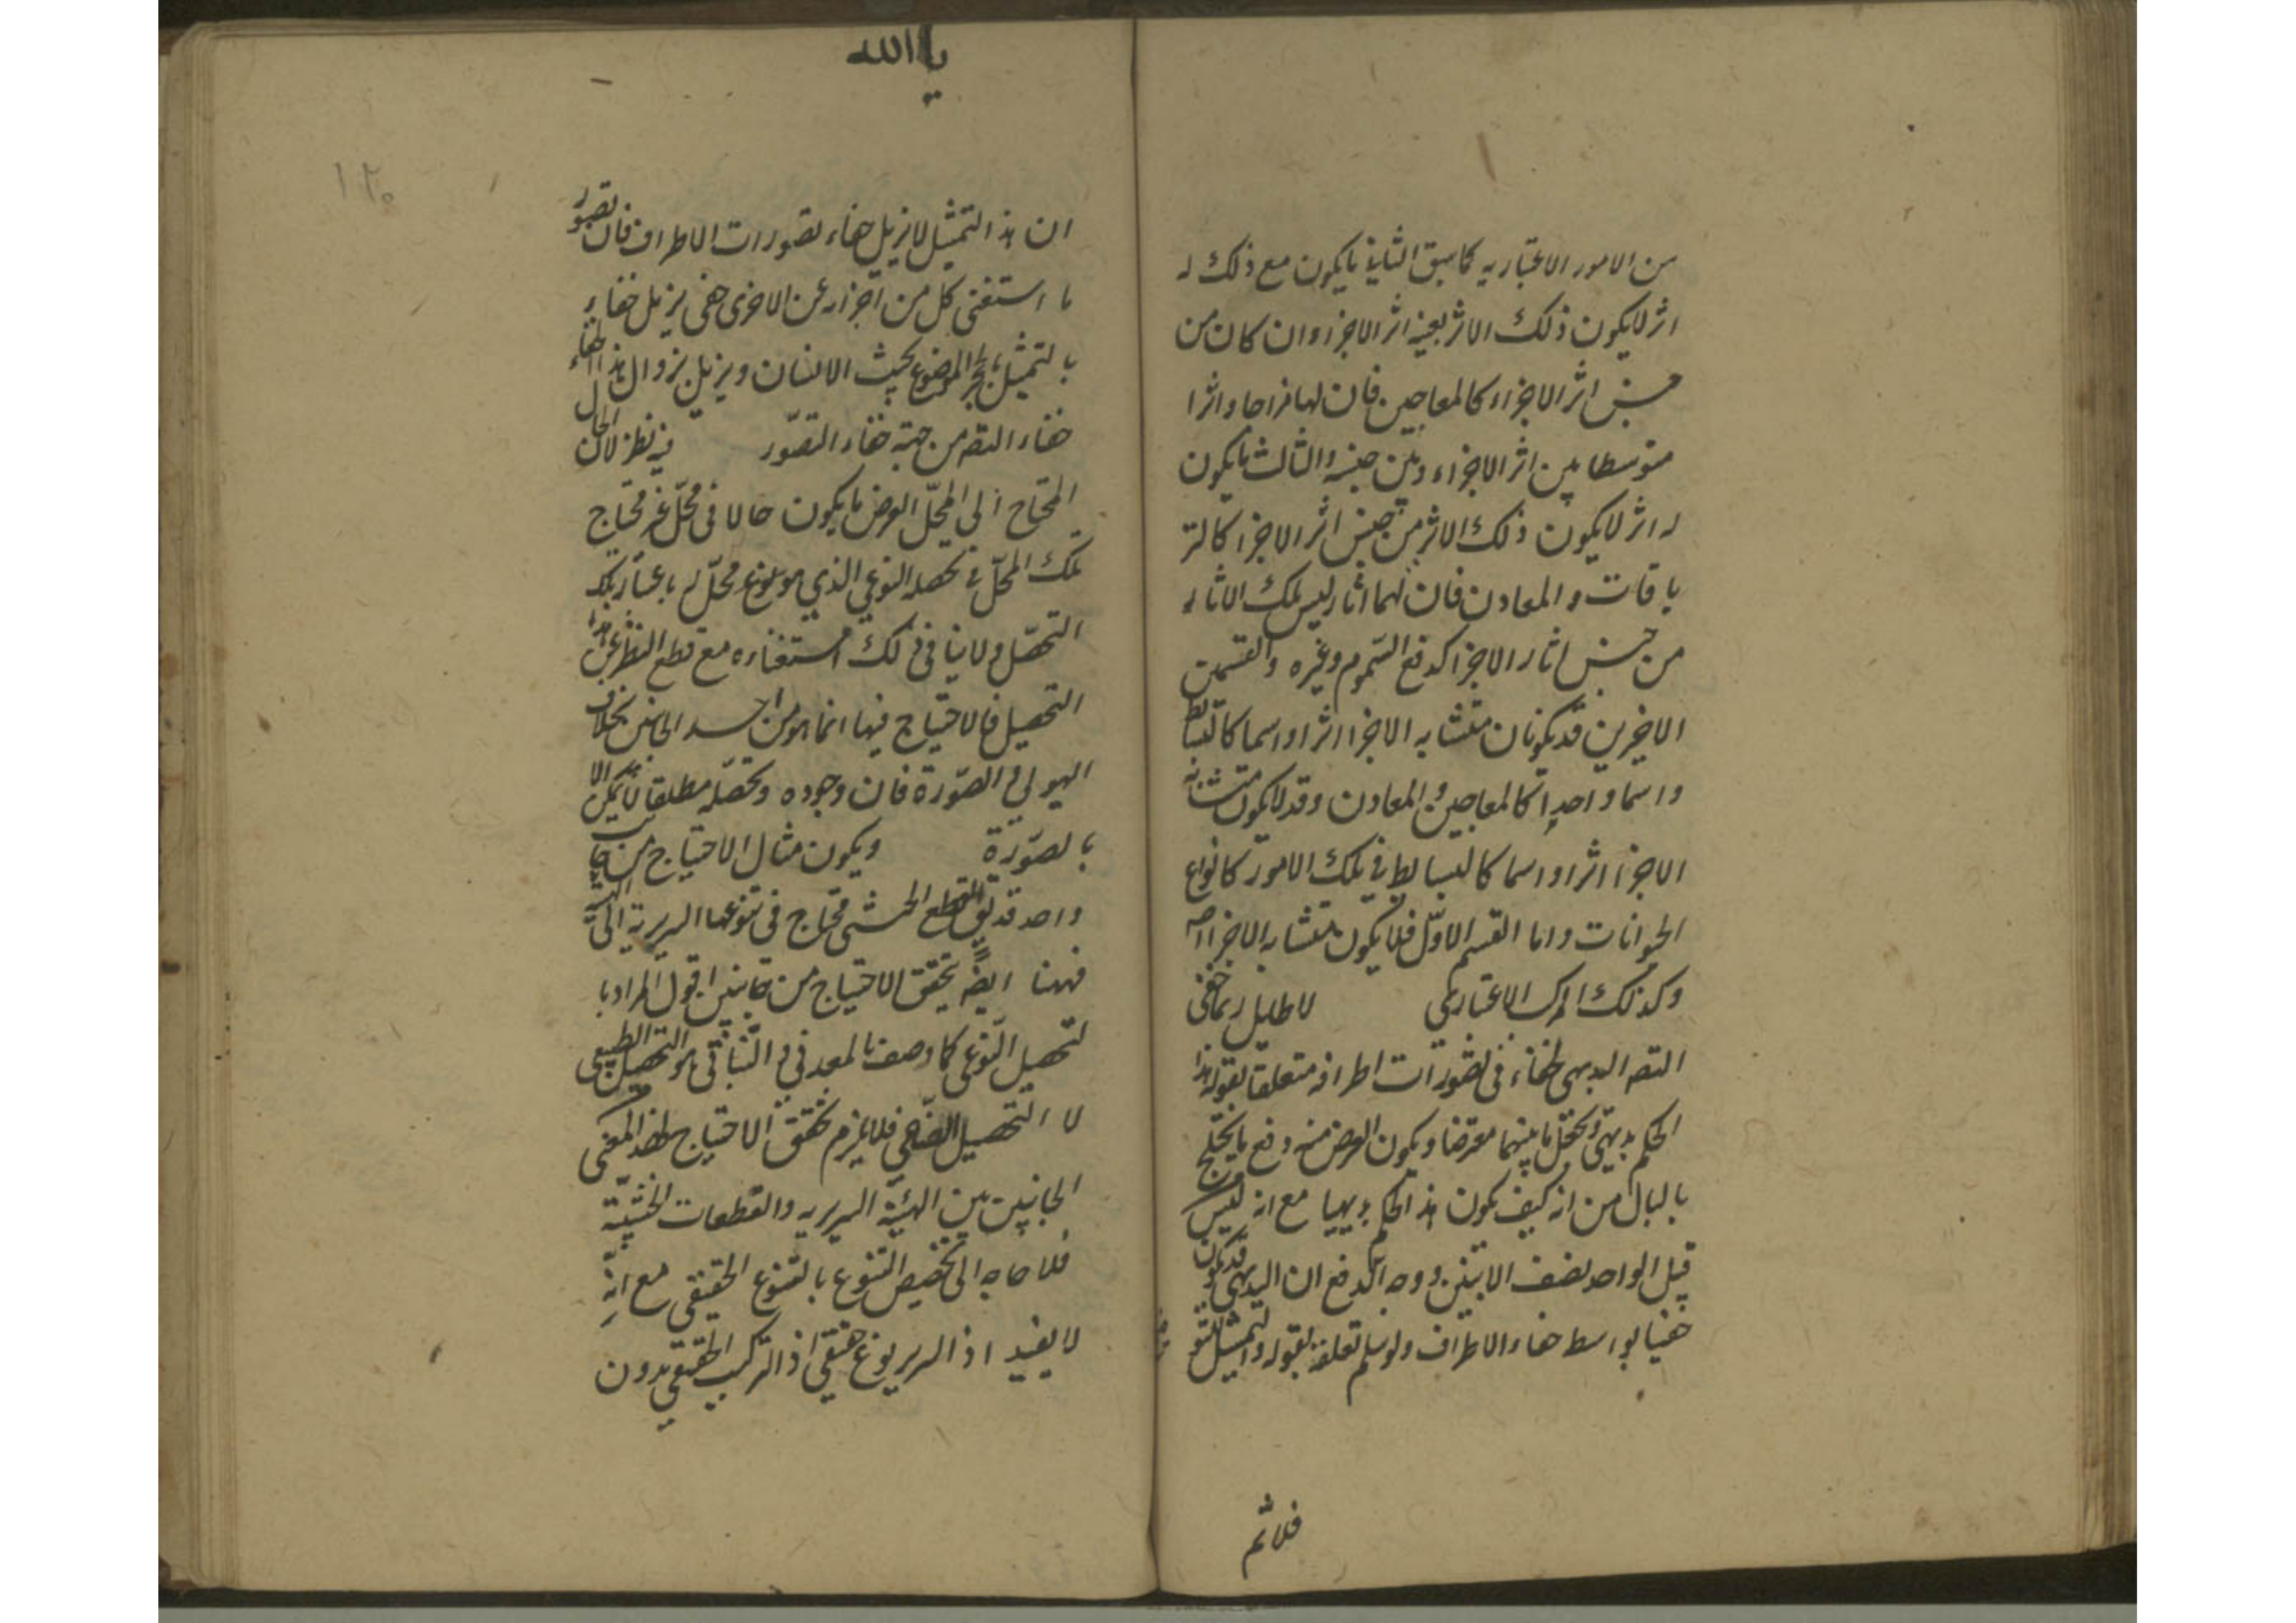 من الامور الاعتباريه كما سبق الثاني ما يكون مع ذلك له
اثر لا يكون ذلك الاثر بعينه اثر الاجزا وان كان من
جنس اثر الاجزاء كالمعاجين فان لها مزاحا واثرا
متوسطا بين اثر الاجزاء وبين جنسه والثالث ما يكون
له اثر لا يكون ذلك الاثر من جنس اثر الاجزا كالتر
ياقات والمعادن فان لهما اثار ليس تلك الاثار
من جنس اثار الاجزا كدفع السموم وغيره والقسمين
الاخيرين قد يكونان متشابه الاجزا اثرا واسما كالبسائط
واسما واحدا كالمعاجين والمعادن وقد لا يكون متشابه
الاجزا اثرا واسما كالبسايط في تلك الامور كانواع
الحيوانات واما القسم الاول فلا يكون متشابه الاجزا اصه
وكذلك المركب الاعتباري لا طايل ربما خفى
التصه البديهى لخفاء فى تصورات اطرافه متعلقا بقوله هذا
الحكم بديهي وتخلل ما بينهما معترضا ويكون الغرض منه دفع ما يختلج
بالبال من انه كيف يكون هذا الحكم بديهيا مع انه ليس
قبل الواحد نصف الاثنين ووجه الدفع ان البديهى قد يكون
خفيا بواسط خفاء الاطراف ولو سلم تعلقه بقوله والتمثيل للتنو
فلا ثم
يا الله
١٢٠
ان هذا التمثيل لا يزيل خفاء تصورات الاطراف فان تصور
ما استغنى كل من اجزائه عن الاخرى خفى يزيل خفاءه
بالتمثيل بالحجر الموضوع بجنب الانسان ويزيل بزوال هذا الخفاء
خفاء التصه من جهة خفاء التصور فيه نظر لان الحال
المحتاج الى المحل العرض ما يكون حالا فى محل غير محتاج
تلك المحل في تحصله النوعي الذي هو بنوع محل له باعتبار تلك
التحصل ولا ينافى ذلك استغناءه مع قطع النظر عن هذا
التحصيل فالاحتياج فيها انما هو من احد الجانبين بخلاف
الهيولي الصورة فان وجوده وتحصله مطلقا لا يمكن الا
بالصورة ويكون مثال الاحتياج من جانب
واحد قد يق القطع الخشبى محتاج فى تنوعها السريرية الى الهيئة
فههنا ايضه يتحقق الاحتياج من جانبين اقول المراد با
لتحصيل النوعى كما وصف بالمعدني والنباتى هو التحصيل الطبيعى
لا التحصيل الصناعى فلا يلزم تحقق الاحتياج بهذا المعنى
الجانبين بين الهيئة السريريه والقطعات الخشبية
فلا حاجه الى تخصيص التنوع بالتنوع الحقيقى مع انه
لا يفيد اذ السرير نوع حقيقى اذ التركيب الحقيقي بدون